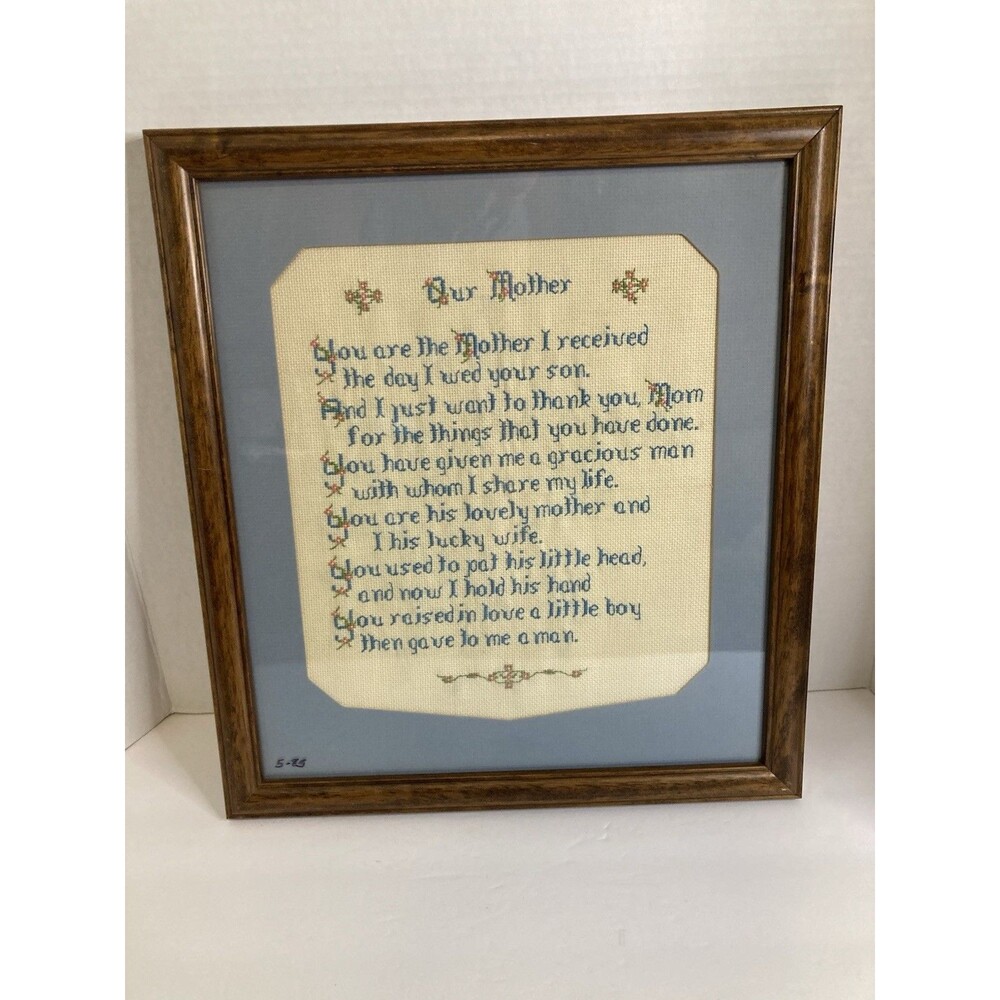 Our Mother
You are the Mother I received
the day I wed your son.
And I just want to thank you, Mom
for the things that you have done.
You have given me a gracious man
with whom I share my life.
You are his lovely mother and
I his lucky wife.
You used to pat his little head,
and now I hold his hand
You raised in love a little boy
then gave to me a man.
5-89